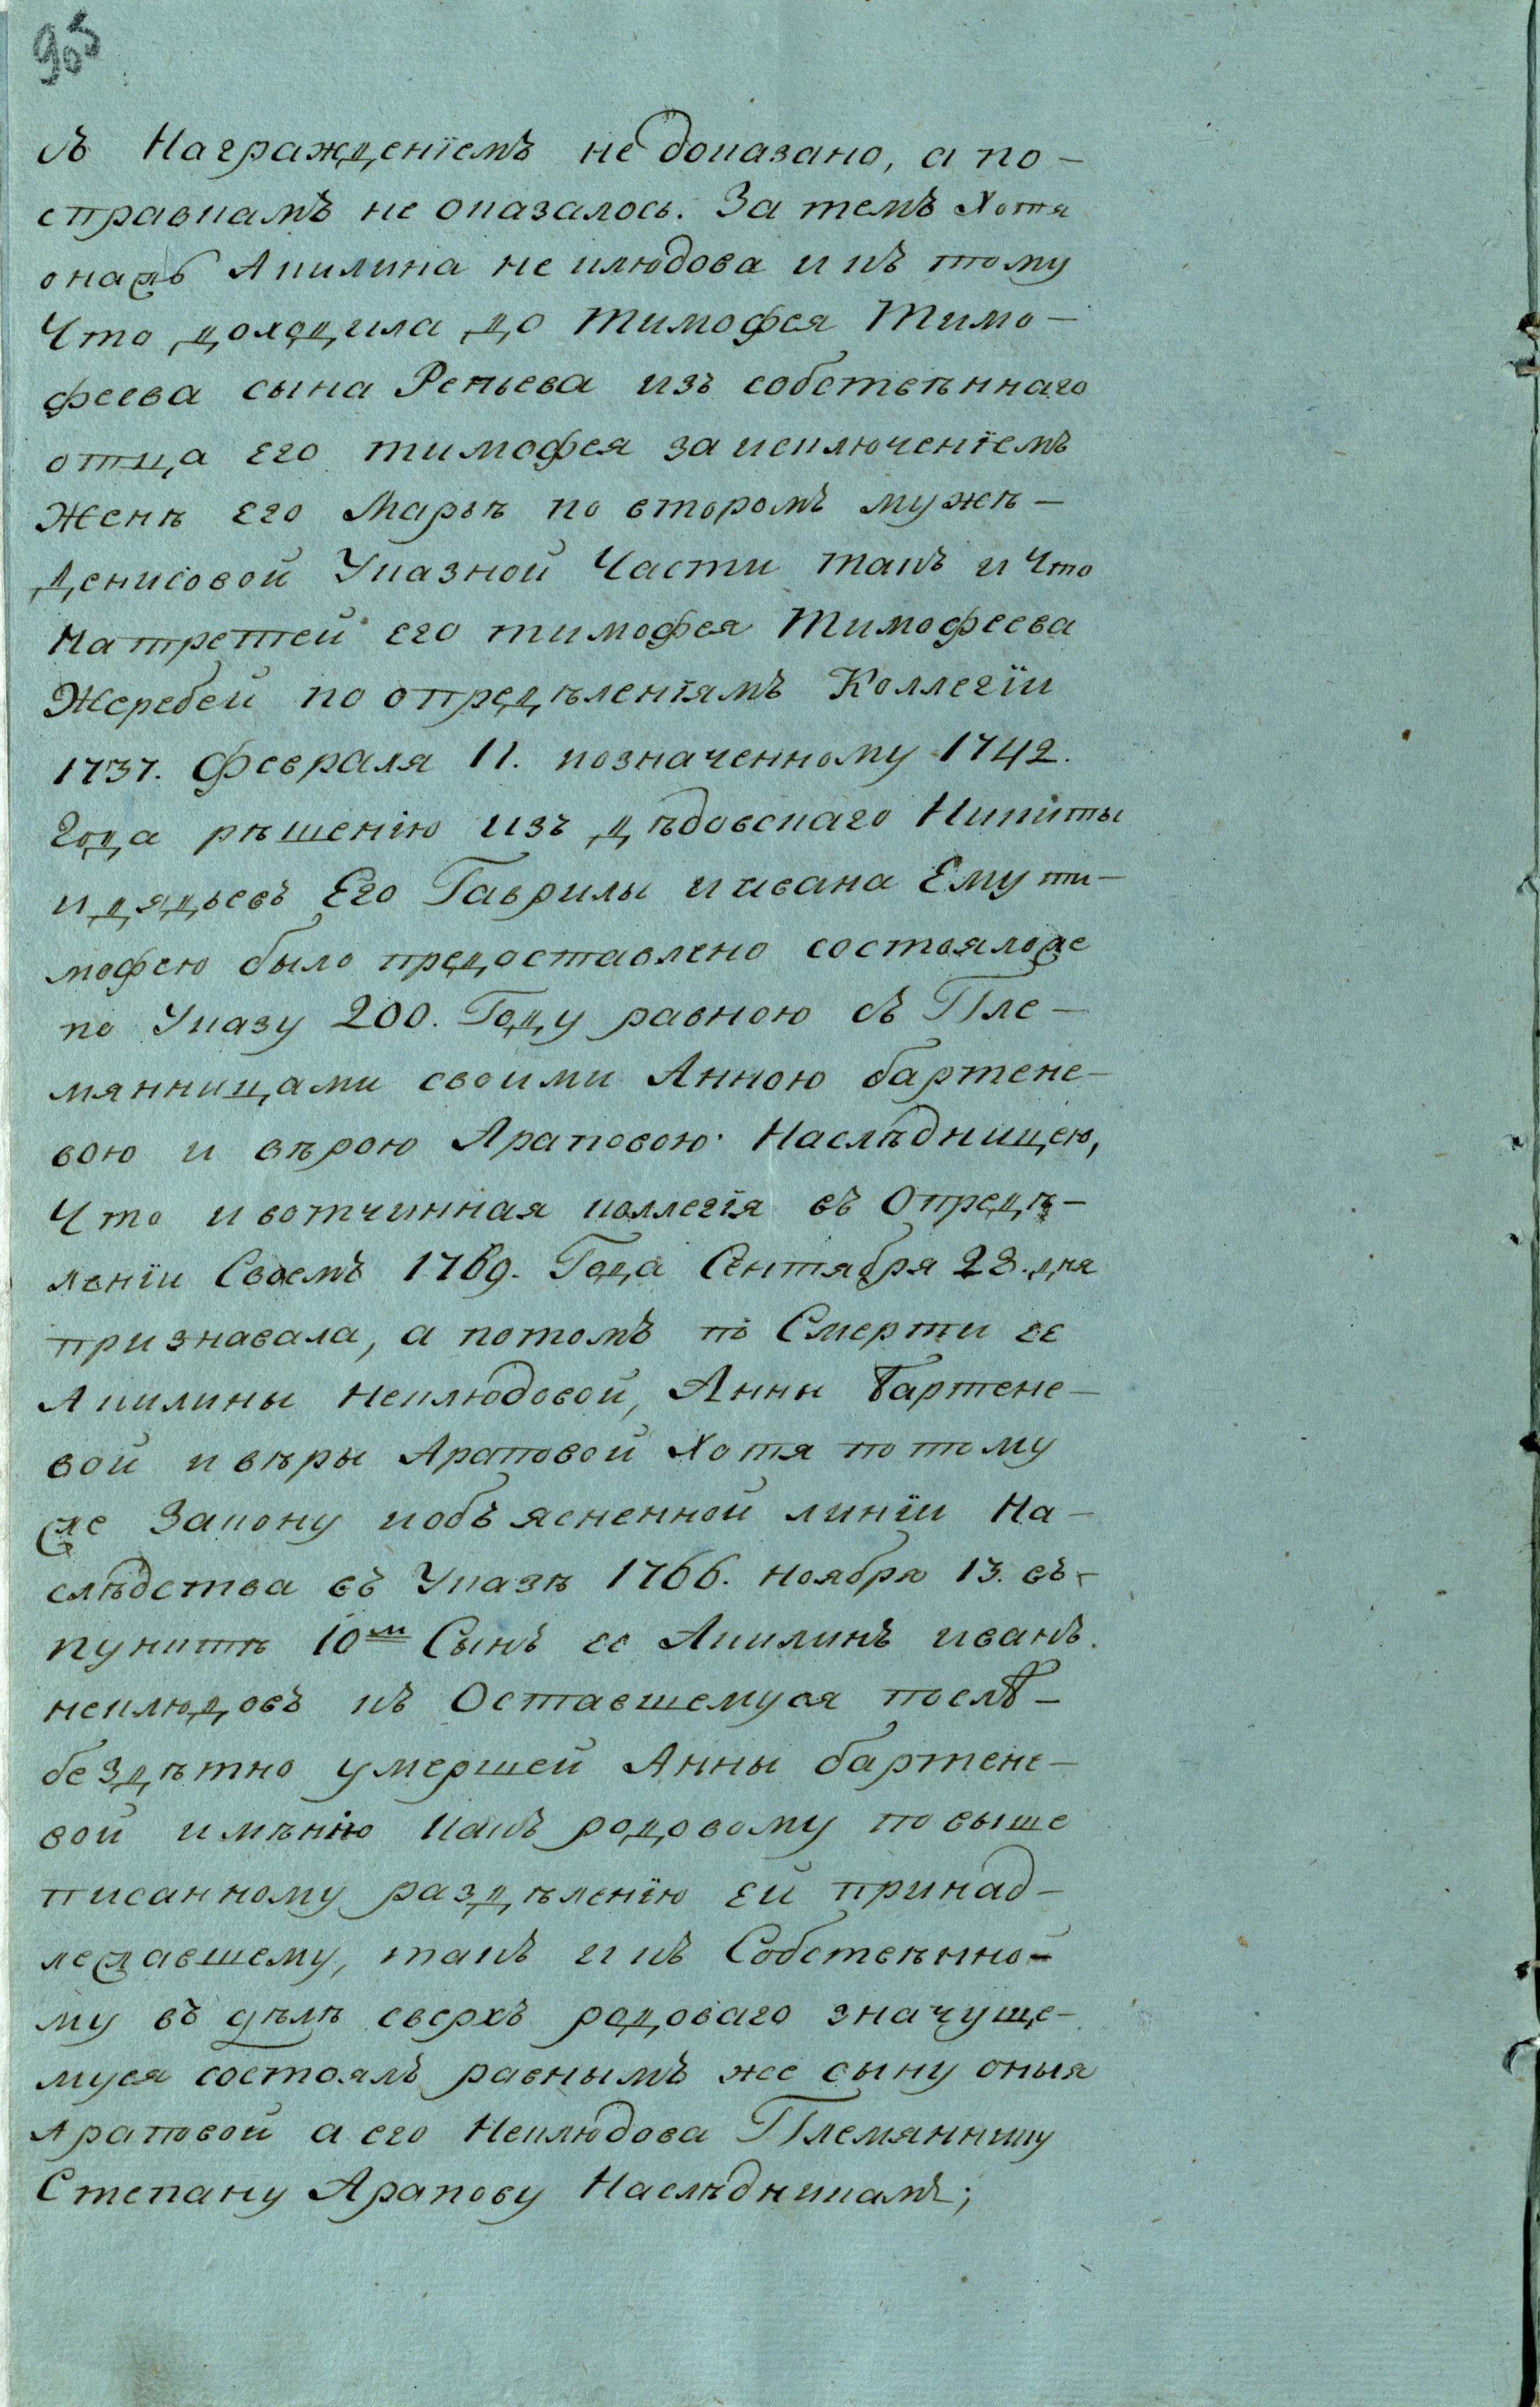 905
съ Награжденїемъ не доказано, а по-
справкамъ не оказалось. За темъ хотя
онаяжъ Акилина неклюдова и къ тому
Что доходила до Тимофея Тимо-
феева сына Репьева изъ собственнаго
отца его тимофея за исключенїемъ
Женѣ его Марьѣ по второмъ мужѣ-
Денисовой Указной Части такъ и что
На третей его тимофея Тимофеева
Жеребей по опредѣленїямъ Коллегїи
1737. Февраля 11. позначенному 1742.
Года рѣшенїю изъ дѣдовскаго Никиты
и дядьевъ Его Гаврилы и ивана Ему ти-
мофею было предоставлено состояло же
по Указу 200. Году равною съ Пле-
мянницами своими Анною бартене-
вою и вѣрою Араповою Наслѣдницею,
Что и вотчинная коллегїя въ Опредѣ-
ленїи Своемъ 1769. Года Сентября 28. дня
признавала, а потомъ по Смерти ее
Акилины Неклюдовой, Анны Бартене-
вой и вѣры Араповой Хотя по тому
же Закону и объясненной линїи На-
слѣдства въ Указѣ 1766. ноября 13. въ-
пунктѣ 10м Сынъ ее Акилинъ иванъ
неклюдовъ къ Оставшемуся послѣ-
бездѣтно умершей Анны бартене-
вой имѣнїю какъ родовому по выше
писанному раздѣленїю ей принад-
лежавшему, такъ и къ Собственно-
му въ дѣлѣ сверхъ родоваго значуще-
муся состоялъ равнымъ же сыну оныя
Араповой а его Неклюдова Племяннику
Степану Арапову Наслѣдникамъ;